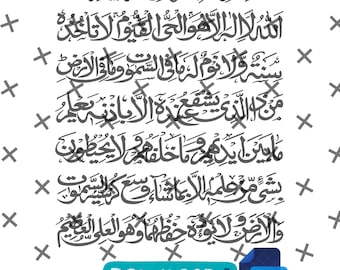 اللهُ لَا إِلٰهَ إِلَّا هُوَ الْحَيُّ الْقَيُّومُ لَا تَأْخُذُهُ
سِنَةٌ وَلَا نَوْمٌ لَهُ مَا فِي السَّمٰوٰتِ وَمَا فِي الْأَرْضِ
مَنْ ذَا الَّذِي يَشْفَعُ عِنْدَهُ إِلَّا بِإِذْنِهِ يَعْلَمُ
مَا بَيْنَ أَيْدِيهِمْ وَمَا خَلْفَهُمْ وَلَا يُحِيطُونَ
بِشَيْءٍ مِنْ عِلْمِهِ إِلَّا بِمَا شَاءَ وَسِعَ كُرْسِيُّهُ السَّمٰوٰتِ
وَالْأَرْضَ وَلَا يَئُودُهُ حِفْظُهُمَا وَهُوَ الْعَلِيُّ الْعَظِيمُ